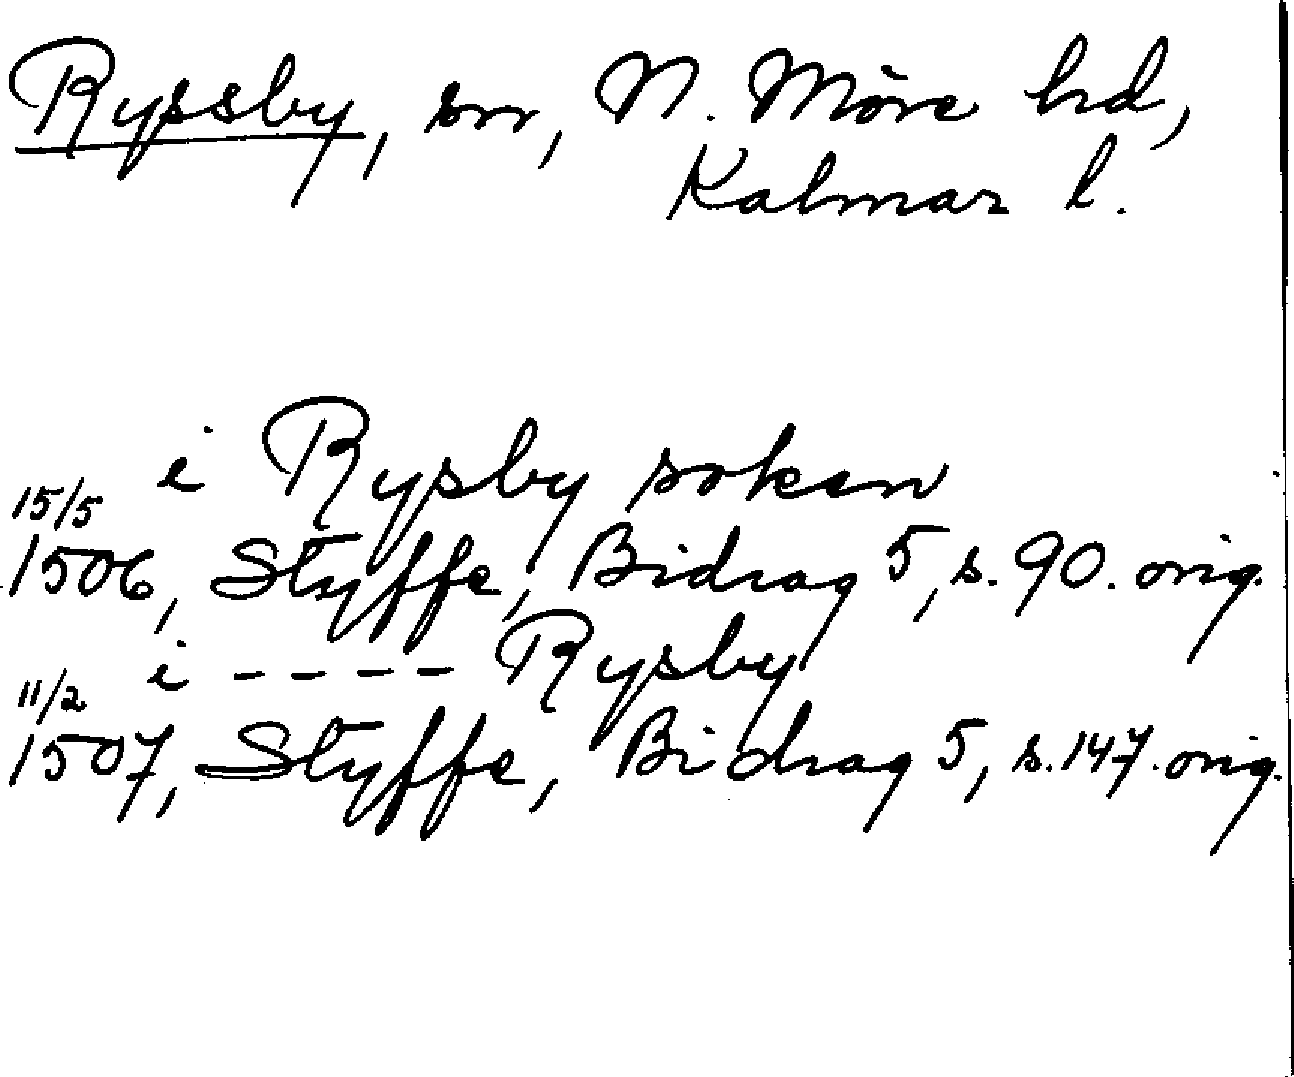 Ryssby, sn, N. Möre hd,
Kalmar l.
i Rysby soken
15/5
1506, Styffe, Bidrag 5, s. 90. orig.
i - - - - Rysby
11/2
1507, Styffe, Bidrag 5, s. 147. orig.